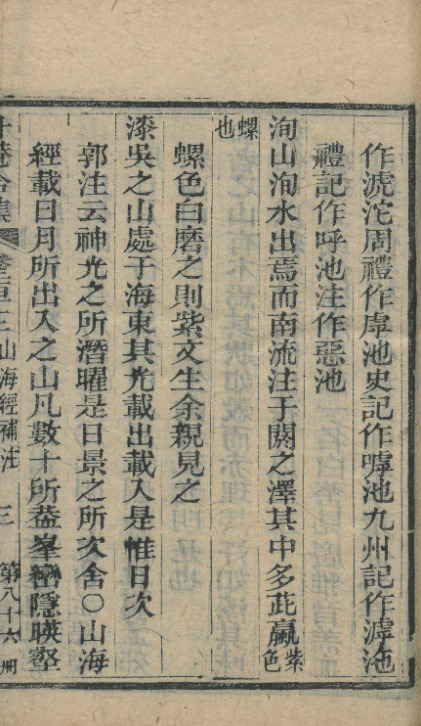 作滹沱周禮作虖池史記作嘑池九州記作滹池
禮記作呼池注作惡池
洵山洵水出焉而南流注于閼之澤其中多茈蠃紫色
螺也
螺色白磨之則紫文生余親見之
漆吳之山處于海東其光載出載入是惟日次
郭注云神光之所潛曜是日景之所次舍○山海
經載日月所出入之山凡數十所蓋峯巒隱暎壑
山海經補注 三 第八十六冊